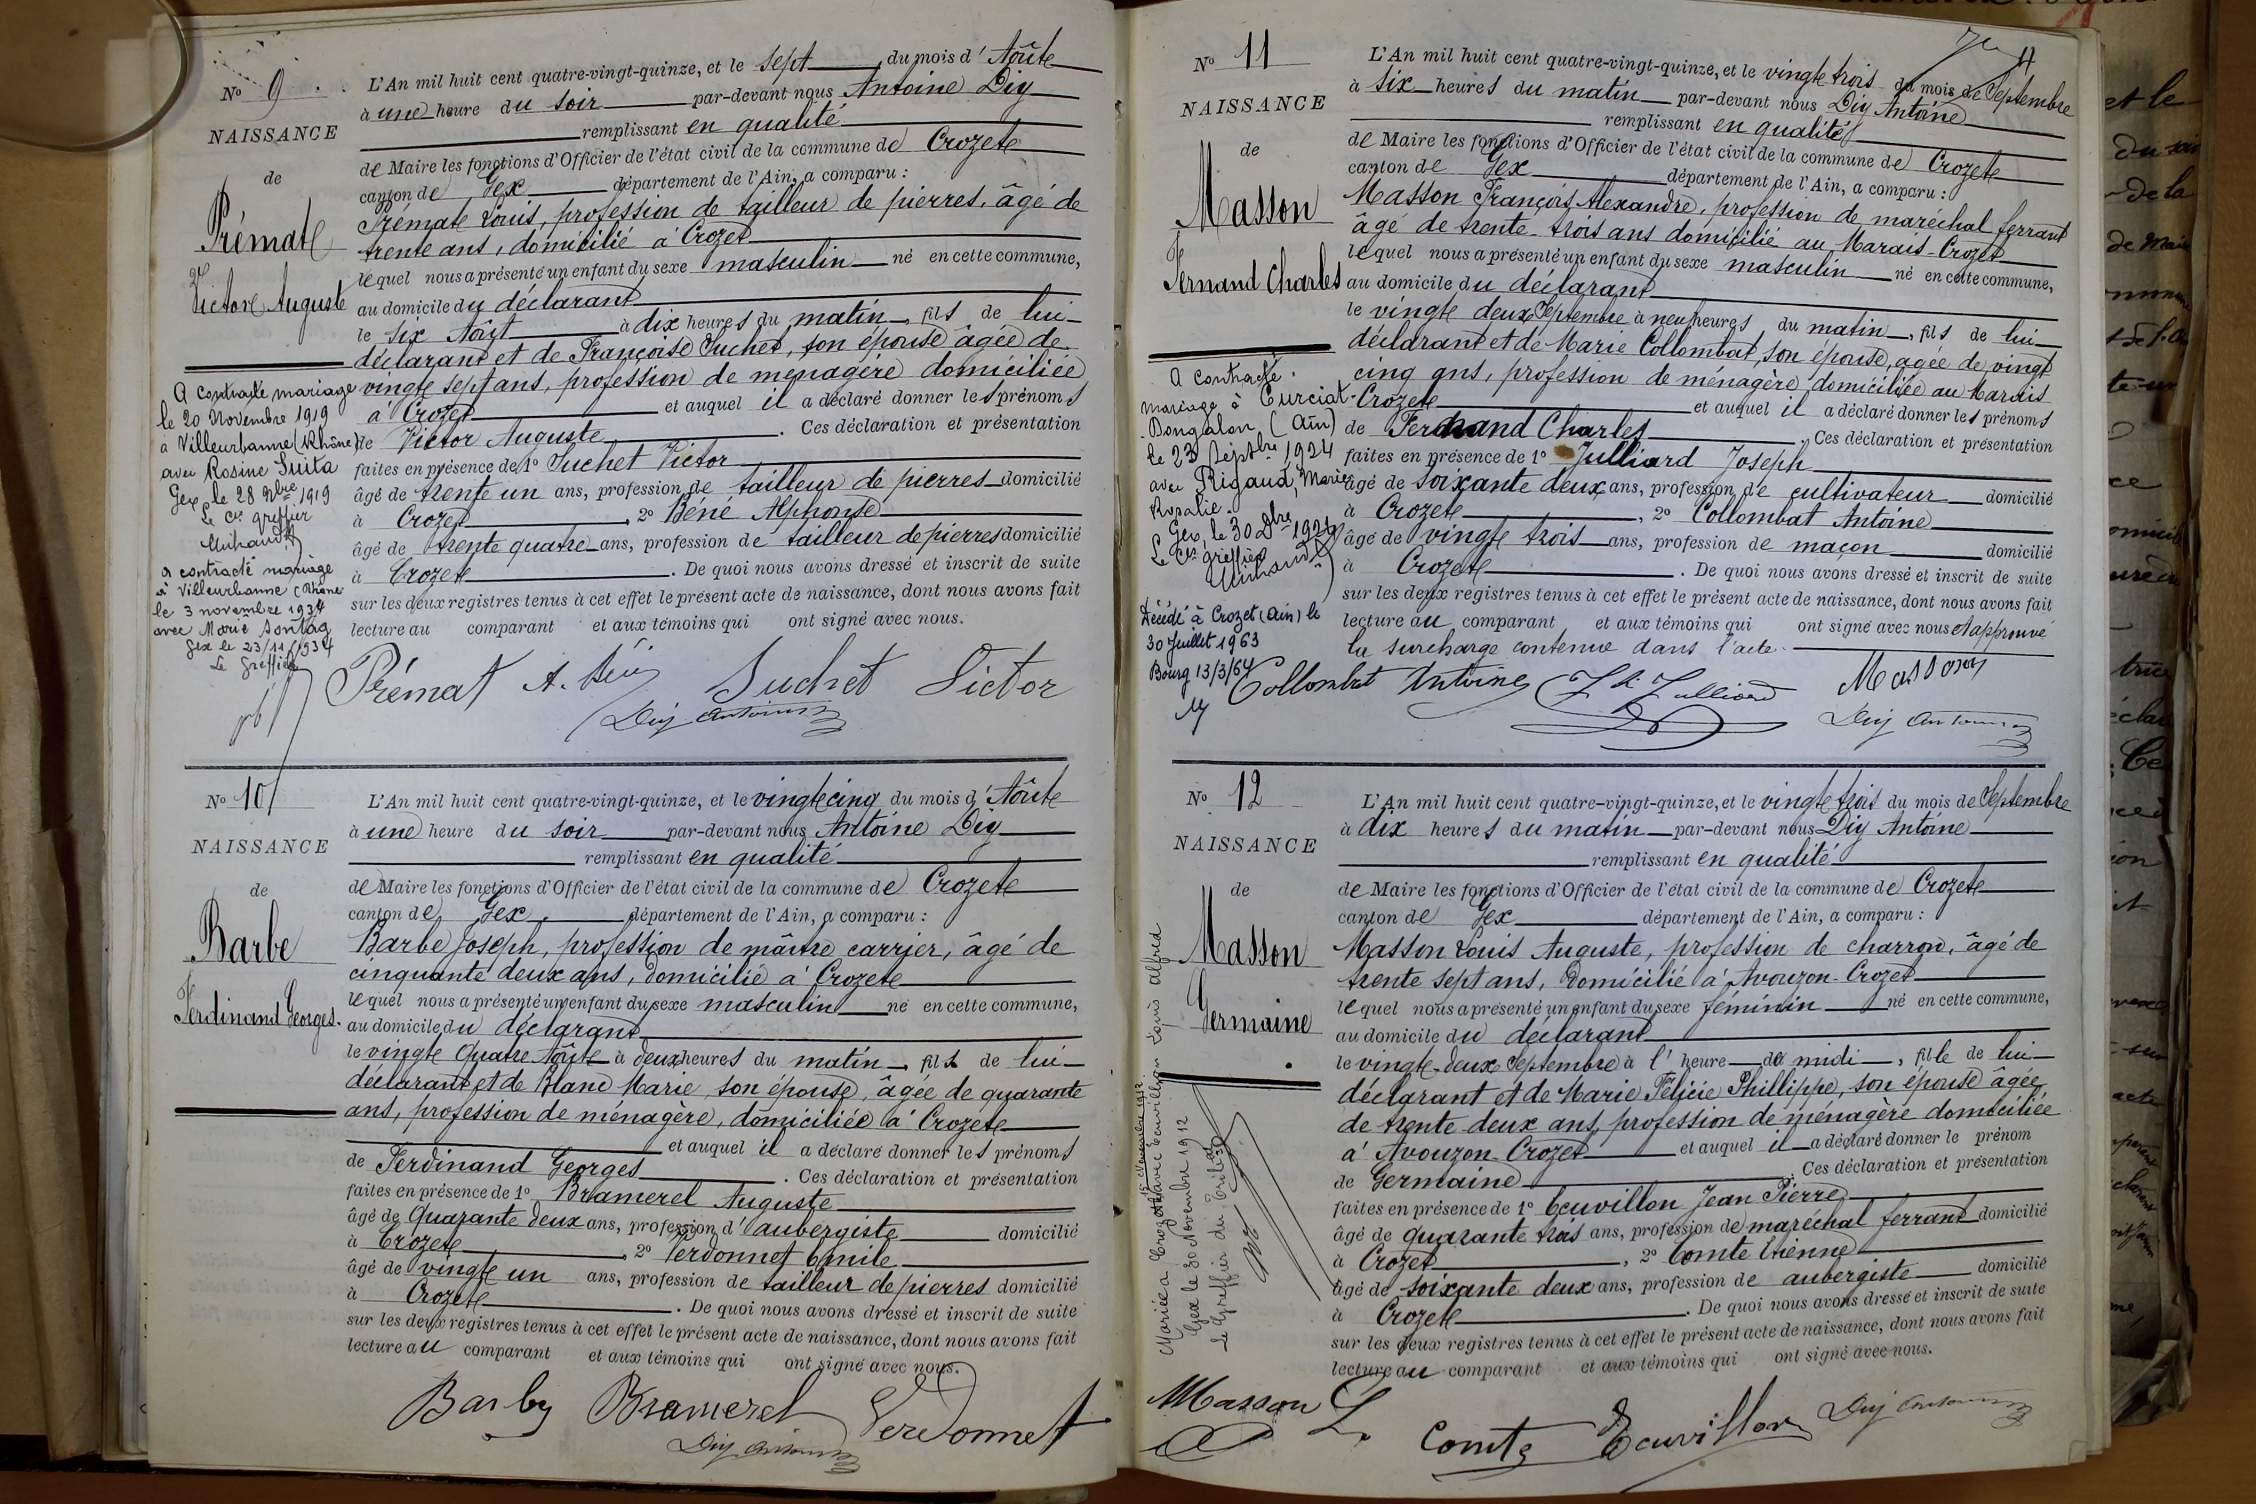 Nº 9
NAISSANCE
de
Prémat
Victor Auguste
A contracté mariage
le 20 Novembre 1919
à Villeurbanne (Rhône)
avec Rosine Suita
Gex, le 28 9bre 1919
Le Cis greffier
a contracté mariage
à Villeurbanne (Rhône)
le 3 novembre 1934
avec Marie Sontag
Gex le 23/11/1934
Le Greffier
L'An mil huit cent quatre-vingt-quinze, et le sept du mois d'Aôut
à une heure du soir par-devant nous Antoine Diy
remplissant en qualité
de Maire les fonctions d'Officier de l'état civil de la commune de Crozet
canton de Gex département de l'Ain, a comparu :
Prémat Louis, profession de tailleur de pierres, âgé de
trente ans, domicilié à Crozet
lequel nous a présenté un enfant du sexe masculin né en cette commune,
au domicile du déclarant
le six Aôut à dix heures du matin, fils de lui
déclarant et de Françoise Suchet, son épouse âgée de
vingt sept ans, profession de ménagère domiciliée
à Crozet et auquel il a déclaré donner les prénoms
de Victor Auguste. Ces déclaration et présentation
faites en présence de 1º Suchet Victor
âgé de trente un ans, profession de tailleur de pierres domicilié
à Crozet, 2º Béné Alphonse
âgé de trente quatre ans, profession de tailleur de pierres domicilié
à Crozet. De quoi nous avons dressé et inscrit de suite
sur les deux registres tenus à cet effet le présent acte de naissance, dont nous avons fait
lecture au comparant et aux témoins qui ont signé avec nous.
Prémat A. Béné Suchet Victor
Diy Antoine
Nº 10
NAISSANCE
de
Barbe
Ferdinand Georges.
L'An mil huit cent quatre-vingt-quinze, et le vingt cinq du mois d'Aôut
à une heure du soir par-devant nous Antoine Diy
remplissant en qualité
de Maire les fonctions d'Officier de l'état civil de la commune de Crozet
canton de Gex département de l'Ain, a comparu :
Barbe Joseph, profession de maître carrier, âgé de
cinquante deux ans, domicilié à Crozet
lequel nous a présenté un enfant du sexe masculin né en cette commune,
au domicile du déclarant
le vingt quatre Aôut à deux heures du matin, fils de lui
déclarant et de Blanc Marie, son épouse, âgée de quarante
ans, profession de ménagère, domiciliée à Crozet
et auquel il a déclaré donner les prénoms
de Ferdinand Georges. Ces déclaration et présentation
faites en présence de 1º Bramerel Auguste
âgé de quarante deux ans, profession d'aubergiste domicilié
à Crozet, 2º Verdonnet Emile
âgé de vingt un ans, profession de tailleur de pierres domicilié
à Crozet. De quoi nous avons dressé et inscrit de suite
sur les deux registres tenus à cet effet le présent acte de naissance, dont nous avons fait
lecture au comparant et aux témoins qui ont signé avec nous.
Barby Bramerel Verdonnet
Diy Antoine
11
Nº 11
NAISSANCE
de
Masson
Fernand Charles
A contracté
mariage à Curciat-
Dongalon, (Ain)
le 23 Septbre 1924
avec Rigaud, Marie
Rosalie.
Gex, le 30 Dbre 1924
Le Cis Greffier
Décédé à Crozet (Ain) le
30 Juillet 1963
Bourg 13/3/64
L'An mil huit cent quatre-vingt-quinze, et le vingt trois du mois de Septembre
à six heures du matin par-devant nous Diy Antoine
remplissant en qualité
de Maire les fonctions d'Officier de l'état civil de la commune de Crozet
canton de Gex département de l'Ain, a comparu :
Masson François Alexandre, profession de maréchal ferrant
âgé de trente trois ans domicilié au Marais-Crozet
lequel nous a présenté un enfant du sexe masculin né en cette commune,
au domicile du déclarant
le vingt deux Septembre à neuf heures du matin, fils de lui
déclarant et de Marie Collombat, son épouse, agée de vingt
cinq ans, profession de ménagère domiciliée au Marais
Crozet et auquel il a déclaré donner les prénoms
de Fernand Charles. Ces déclaration et présentation
faites en présence de 1º Julliard Joseph
âgé de soixante deux ans, profession de cultivateur domicilié
à Crozet, 2º Collombat Antoine
âgé de vingt trois ans, profession de maçon domicilié
à Crozet. De quoi nous avons dressé et inscrit de suite
sur les deux registres tenus à cet effet le présent acte de naissance, dont nous avons fait
lecture au comparant et aux témoins qui ont signé avec nous et approuvé
la surcharge contenue dans l'acte.
Collombat Antoine Julliard Masson
Diy Antoine
Nº 12
NAISSANCE
de
Masson
Germaine
Mariée à Crozet avec Ecuvillon Louis Alfred
15 Novembre 1912
Gex le 30 Novembre 1912
Le Greffier du Tribal
L'An mil huit cent quatre-vingt-quinze, et le vingt trois du mois de Septembre
à dix heures du matin par-devant nous Diy Antoine
remplissant en qualité
de Maire les fonctions d'Officier de l'état civil de la commune de Crozet
canton de Gex département de l'Ain, a comparu :
Masson Louis Auguste, profession de charron, âgé de
trente sept ans, domicilié à Avouzon-Crozet
lequel nous a présenté un enfant du sexe féminin né en cette commune,
au domicile du déclarant
le vingt-deux Septembre à l'heure de midi, fille de lui
déclarant et de Marie Félicie Phillippe, son épouse âgée
de trente deux ans, profession de ménagère domiciliée
à Avouzon Crozet et auquel il a déclaré donner le prénom
de Germaine Ces déclaration et présentation
faites en présence de 1º Ecuvillon Jean Pierre
âgé de quarante trois ans, profession de maréchal ferrant domicilié
à Crozet, 2º Comte Etienne
âgé de soixante deux ans, profession de aubergiste domicilié
à Crozet. De quoi nous avons dressé et inscrit de suite
sur les deux registres tenus à cet effet le présent acte de naissance, dont nous avons fait
lecture au comparant et aux témoins qui ont signé avec nous.
Masson L. Comte Ecuvillon Diy Antoine